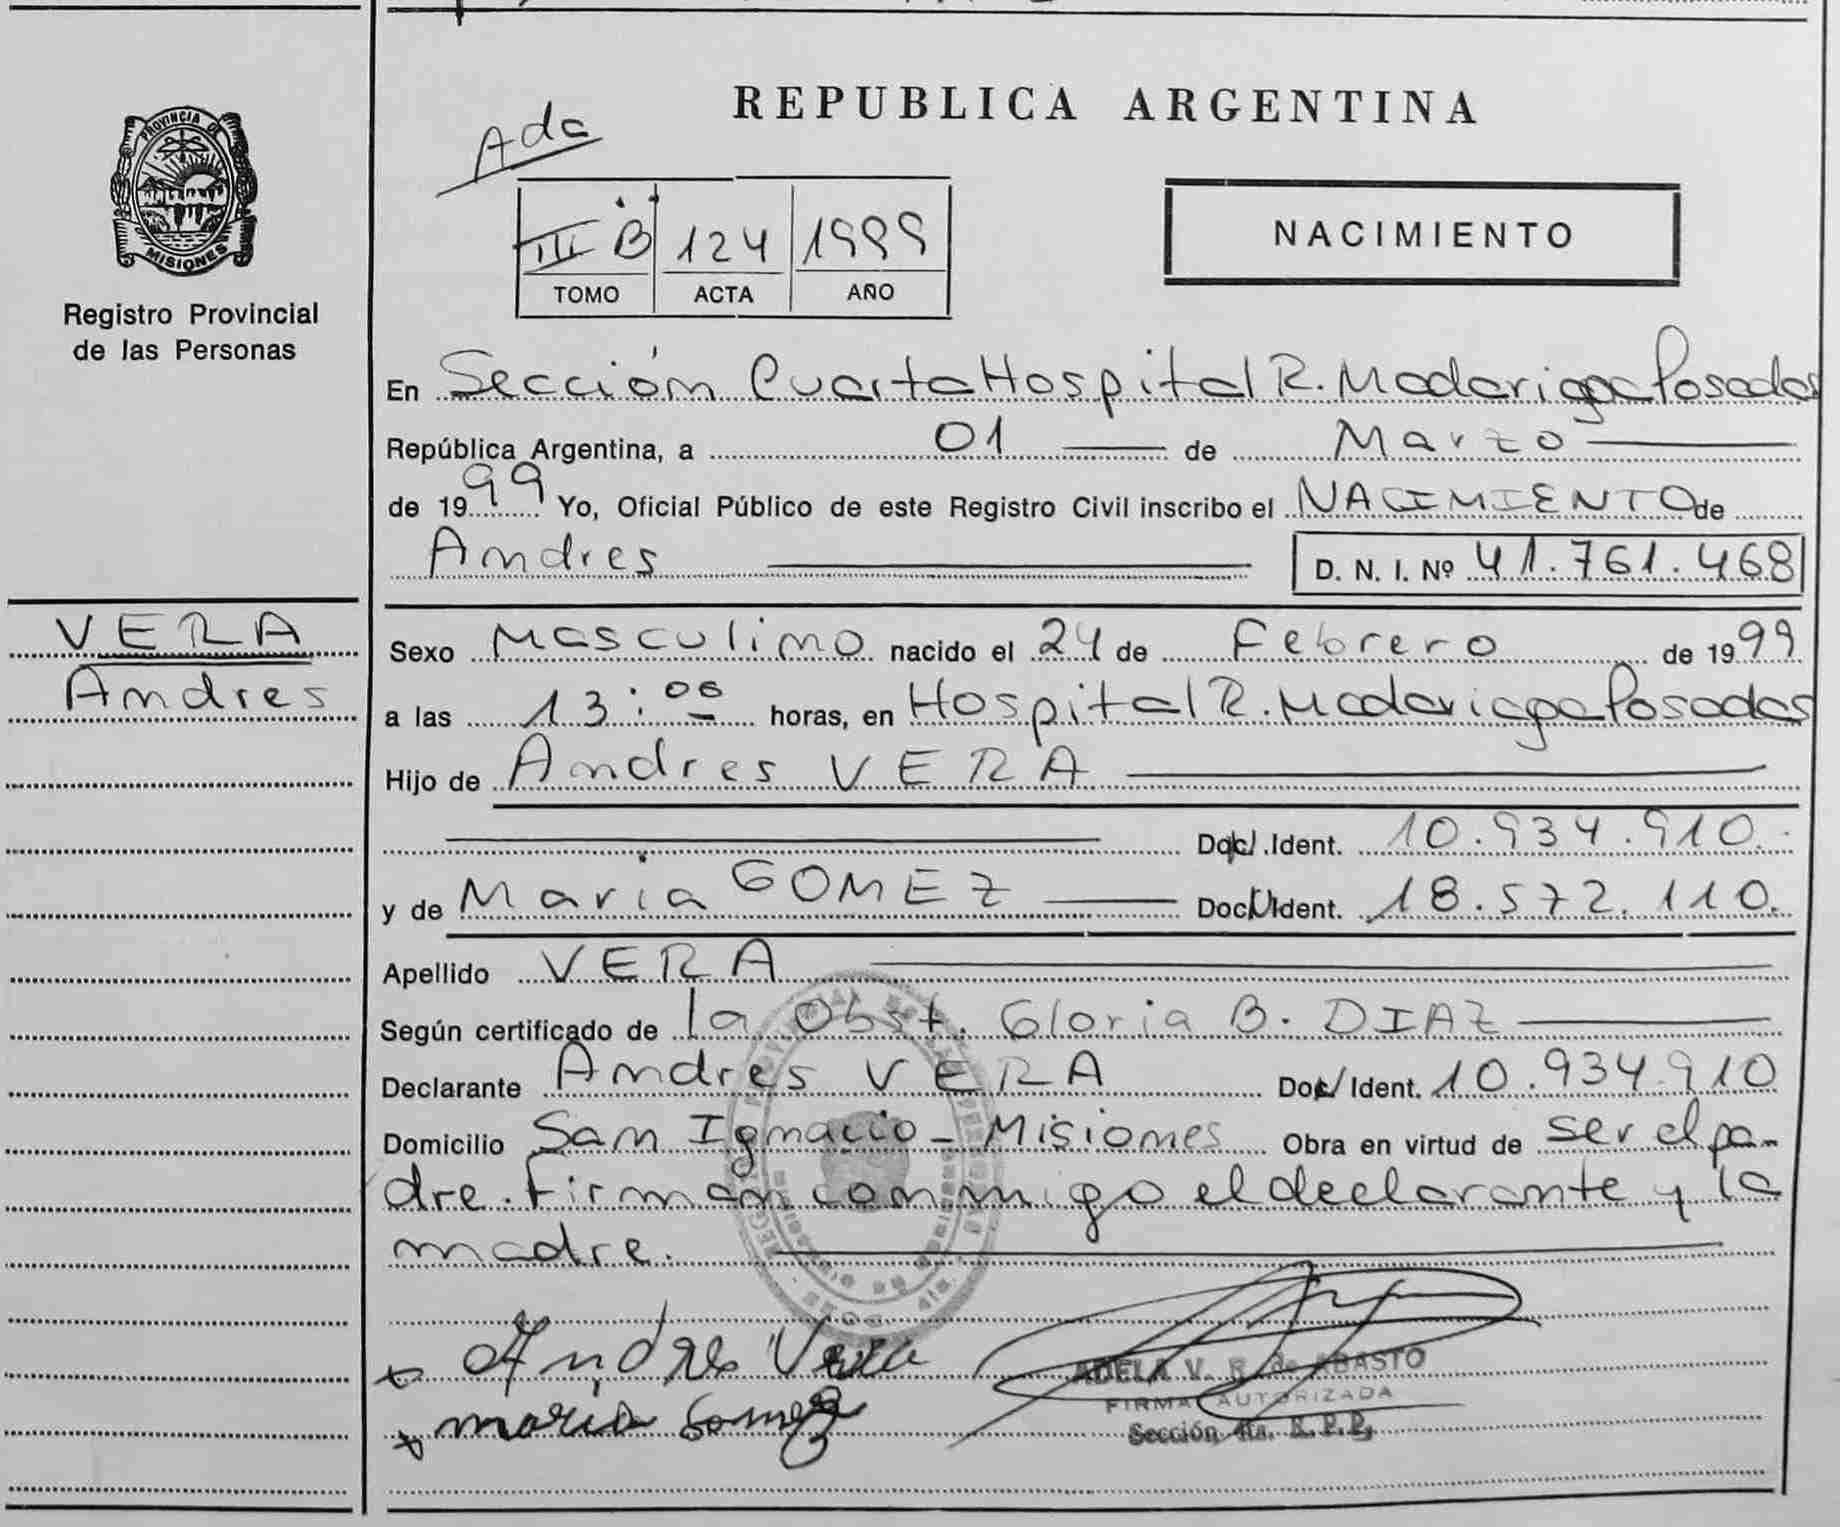 REPUBLICA ARGENTINA
PROVINCIA DE
MISIONES
Registro Provincial
de las Personas
Ada
III B 124 1999
TOMO ACTA AÑO
NACIMIENTO
En Sección Cuarta Hospital R. Madariaga Posadas
República Argentina, a 01 de Marzo
de 1999 Yo, Oficial Público de este Registro Civil inscribo el NACIMIENTO de
Andres D. N. I. Nº 41.761.468
VERA
Andres
Sexo Masculino nacido el 24 de Febrero de 1999
a las 13:06 horas, en Hospital R. Madariaga Posadas
Hijo de Andres VERA
Doc. Ident. 10.934.910.
y de Maria GOMEZ Doc. Ident. 18.572.110.
Apellido VERA
Según certificado de la Obst. Gloria B. DIAZ
Declarante Andres VERA Doc. Ident. 10.934.910
Domicilio San Ignacio - Misiones Obra en virtud de ser el pa-
dre. Firman conmigo el declarante y la
madre.
Andres Vera
maria Gomez
ADELA V. R. de ABASTO
FIRMA AUTORIZADA
Sección 4a. R.P.P.